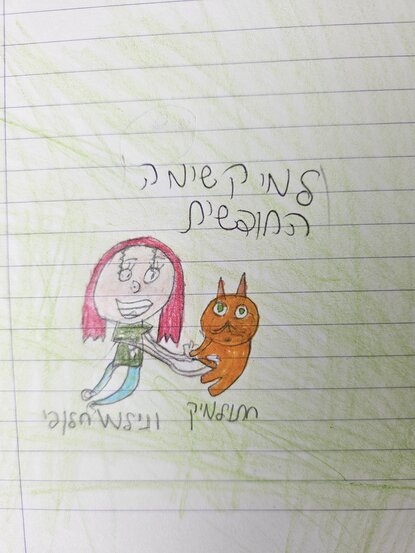 למי קשימה
החופשית
חתולמיק